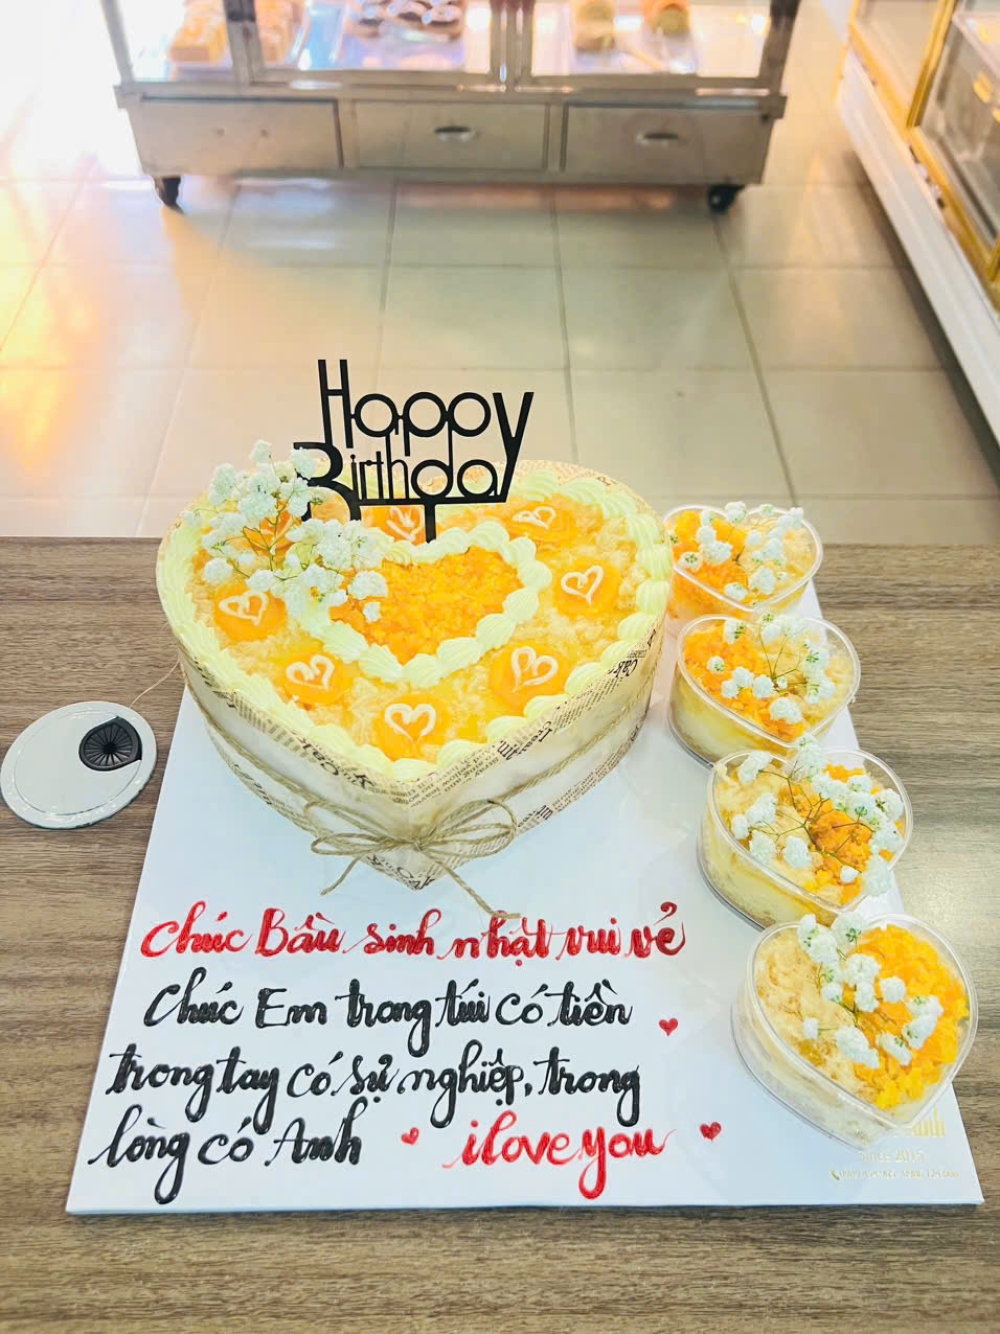 Happy
Birthday
Chúc Bầu sinh nhật vui vẻ
Chúc Em trong túi có tiền
trong tay có sự nghiệp, trong
lòng có Anh iloveyou
since 2015